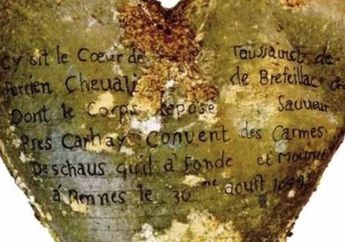 cy Gît le Cœur de Taussainct de
Perrien Chevali de Brefeillac
Dont le Corps Repose Sauveur
Pres Carhay Convent des Carmes
Deschaus quil à fonde et Mourut
à Rennes le 30me aoust